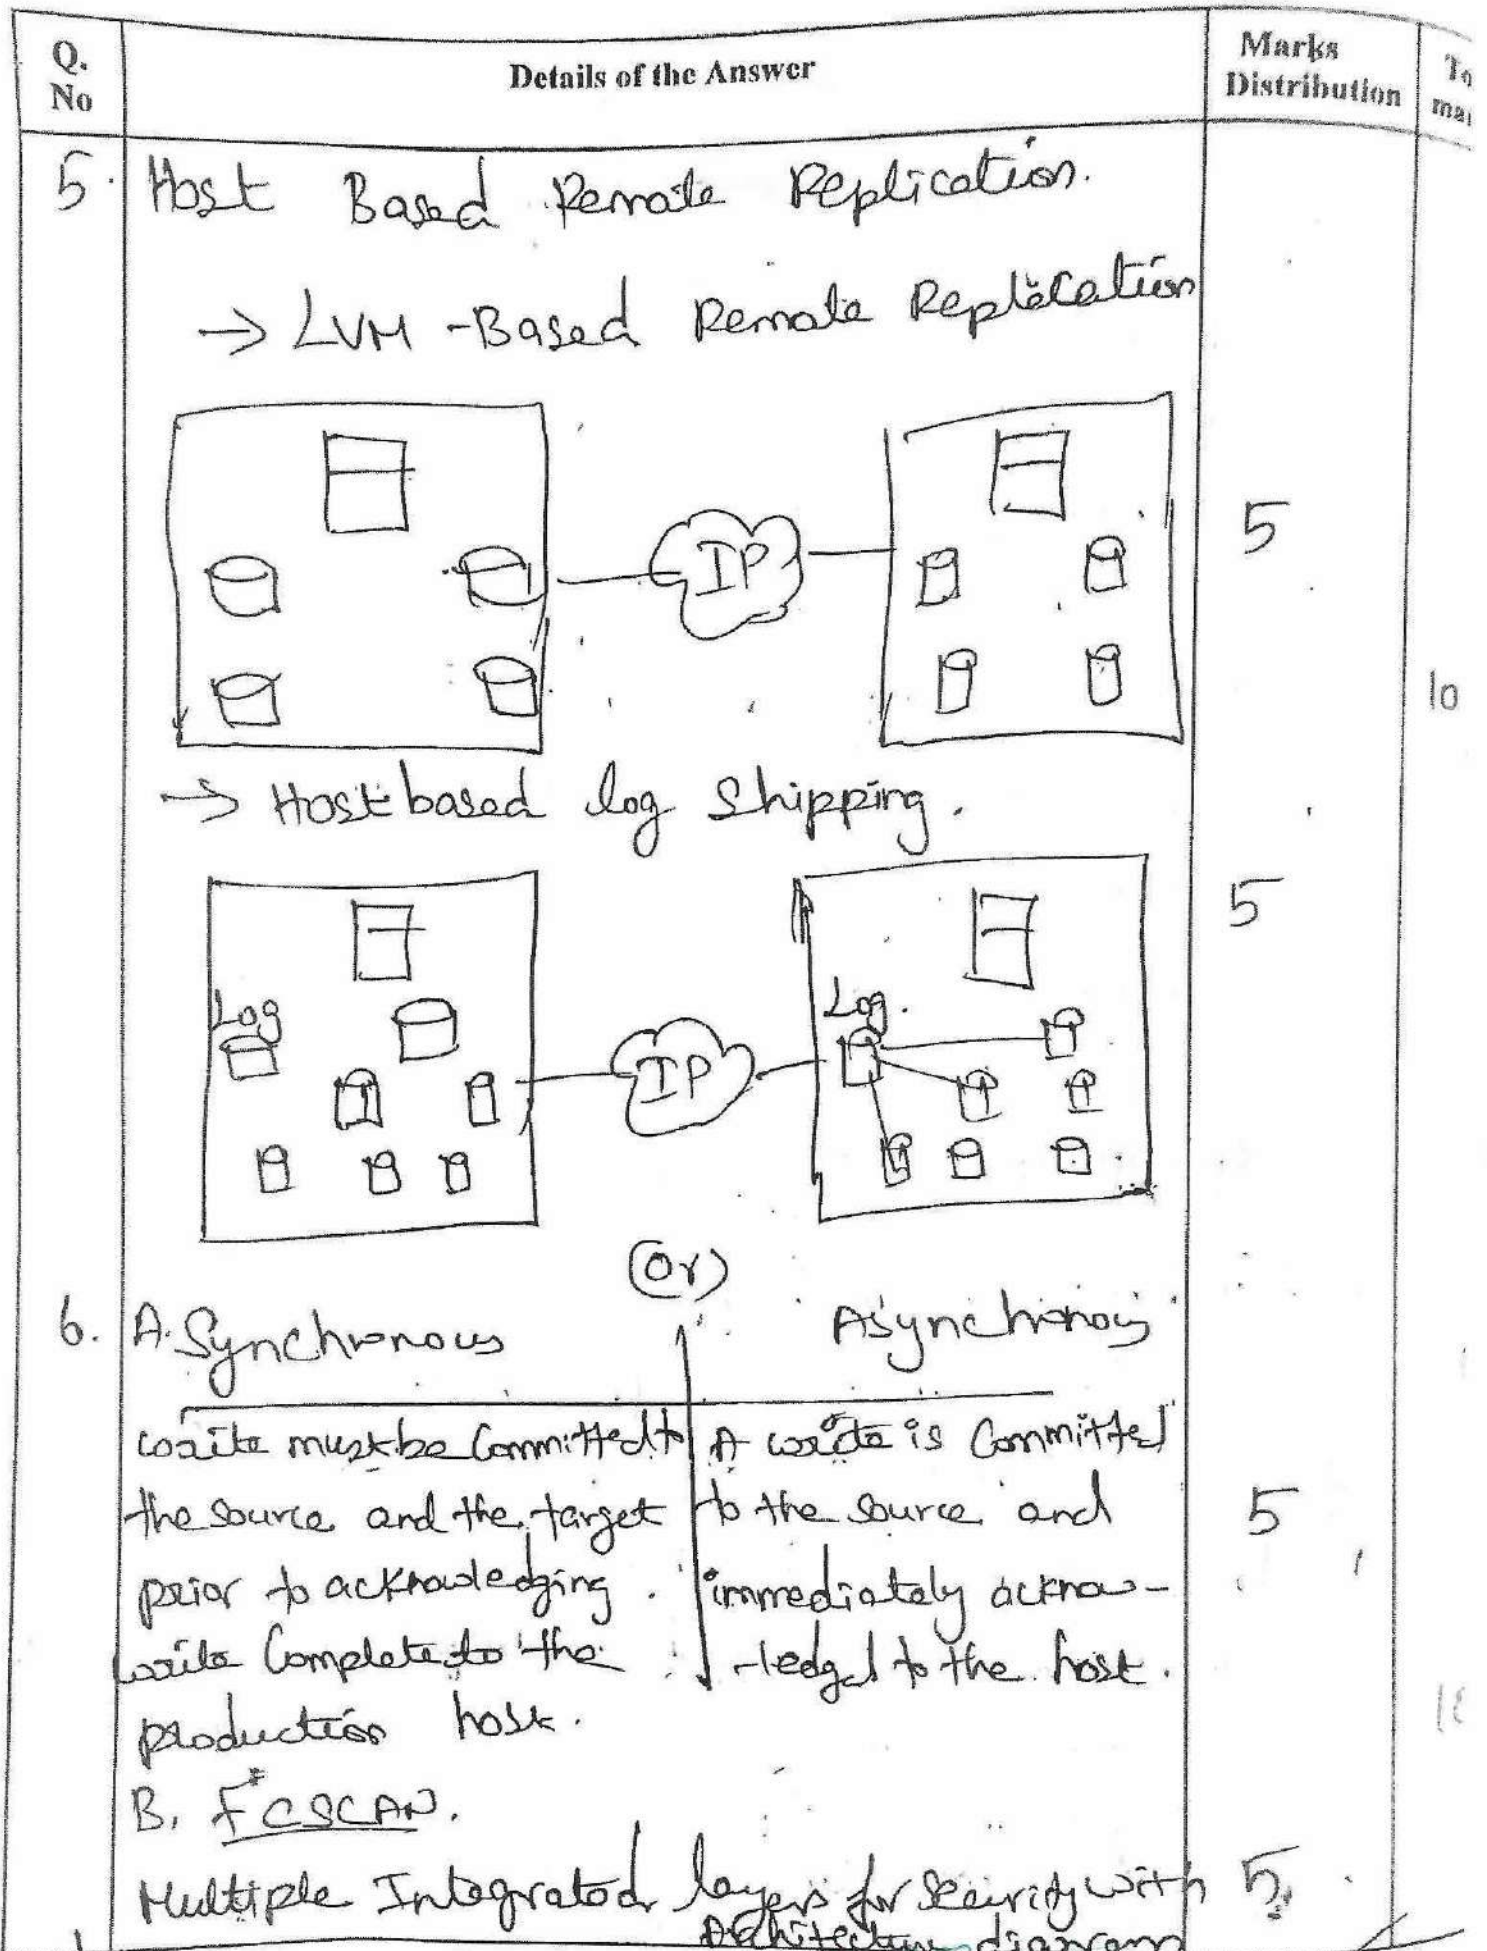 Q. No
Details of the Answer
Marks Distribution
5. Host Based Remote Replication.
→ LVM - Based Remote Replication
IP
5
10
→ Host based log Shipping.
5
Log
IP
Log.
(Or)
6. A. Synchronous
Asynchronous
write must be Committed to
the source and the target
prior to acknowledging.
write Complete to the
production host.
A write is Committed
to the source and
immediately acknow-
-ledged to the host.
5
B. FCSCAN.
Multiple Integrated layers for Security with
Architecture diagram
5